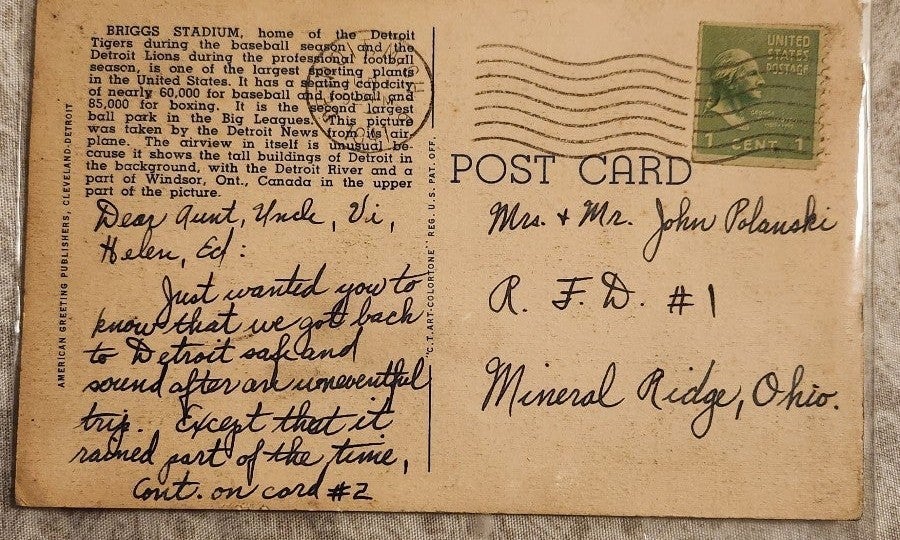 BRIGGS STADIUM, home of the Detroit
Tigers during the baseball season and the
Detroit Lions during the professional football
season, is one of the largest sporting plants
in the United States. It has a seating capacity
of nearly 60,000 for baseball and football and
85,000 for boxing. It is the second largest
ball park in the Big Leagues. This picture
was taken by the Detroit News from its air
plane. The airview in itself is unusual be-
cause it shows the tall buildings of Detroit in
the background, with the Detroit River and a
part of Windsor, Ont., Canada in the upper
part of the picture.
Dear Aunt, Uncle, Vi,
Helen, Ed:
Just wanted you to
know that we got back
to Detroit safe and
sound after an uneventful
trip. Except that it
rained part of the time,
Cont. on card #2
AMERICAN GREETING PUBLISHERS, CLEVELAND-DETROIT
"C.T. ART-COLORTONE" REG. U.S. PAT. OFF.
UNITED
STATES
POSTAGE
1 CENT 1
POST CARD
Mrs. + Mr. John Polanski
R. F. D. #1
Mineral Ridge, Ohio.